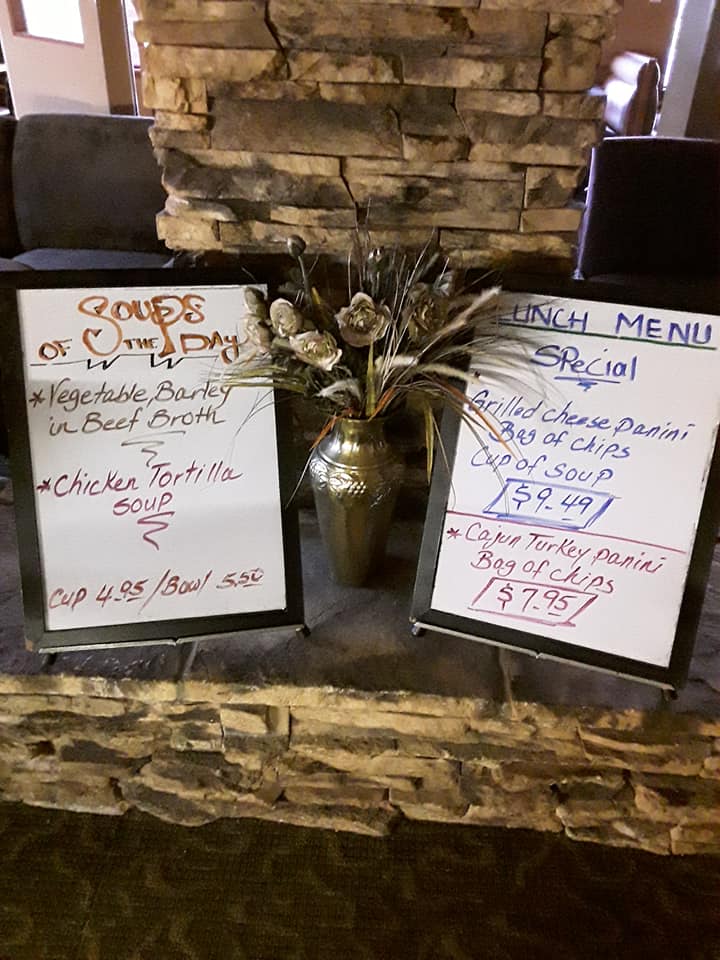 SOUPS
OF THE DAY
* Vegetable, Barley
in Beef Broth
* Chicken Tortilla
SOUP
CUP 4.95/Bowl 5.50
LUNCH MENU
Special
Grilled cheese panini
Bag of chips
Cup of Soup
$9.49
* Cajun Turkey panini
Bag of chips
$7.95